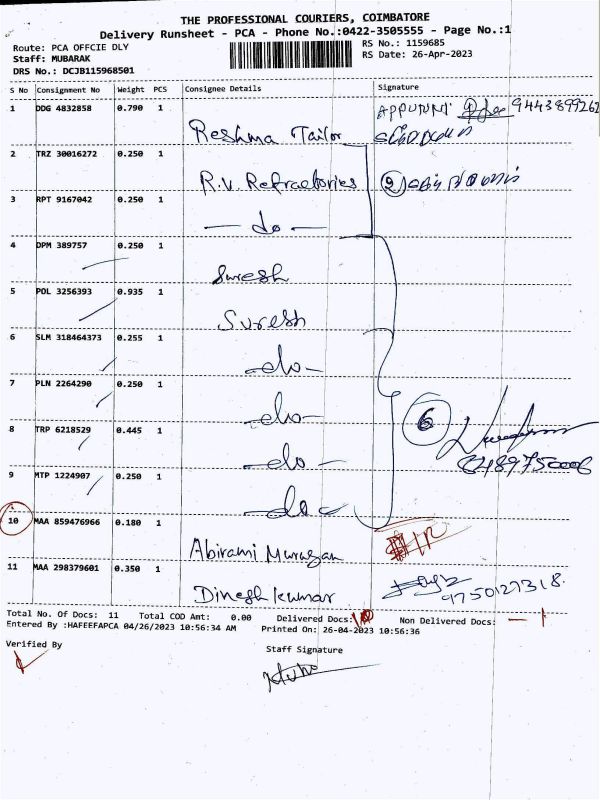 THE PROFESSIONAL COURIERS, COIMBATORE
Delivery Runsheet - PCA - Phone No.:0422-3505555 - Page No.:1
Route: PCA OFFCIE DLY
Staff: MUBARAK
DRS No.: DCJB115968501
RS No.: 1159685
RS Date: 26-Apr-2023
S No Consignment No Weight PCS Consignee Details Signature
1 DDG 4832858 0.790 1 Reshma Tailor
2 TRZ 30016272 0.250 1 R.V. Refractories
3 RPT 9167042 0.250 1 — do —
4 DPM 389757 0.250 1 Suresh
5 POL 3256393 0.935 1 Suresh
6 SLM 318464373 0.255 1 -do-
7 PLN 2264290 0.250 1 -do-
8 TRP 6218529 0.445 1 -do-
6
9 MTP 1224907 0.250 1 -do-
10 MAA 859476966 0.180 1 Abirami Murugan
11 MAA 298379601 0.350 1 Dinesh kumar 9750127318.
Total No. Of Docs: 11 Total COD Amt: 0.00 Delivered Docs: Non Delivered Docs: — 1
Entered By :HAFEEFAPCA 04/26/2023 10:56:34 AM Printed On: 26-04-2023 10:56:36
Verified By
Staff Signature